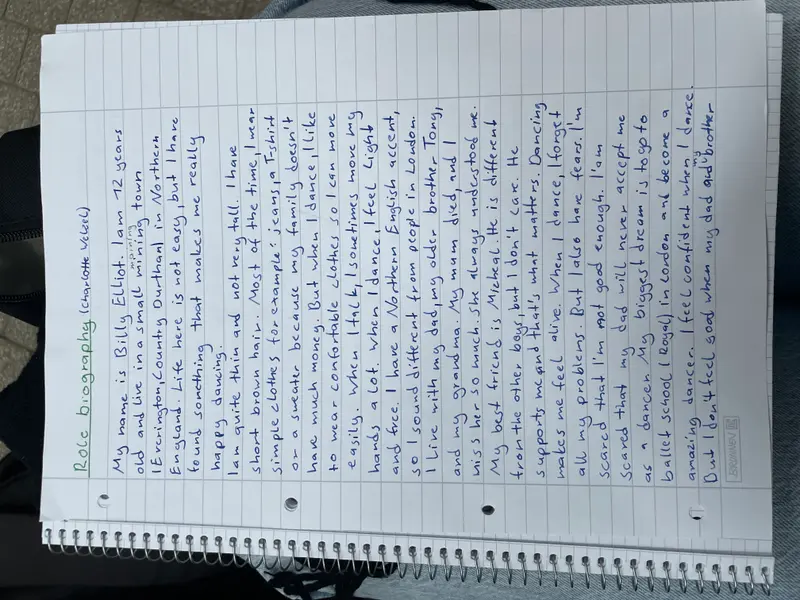 Role biography (Charlotte Velzel)
My name is Billy Elliot. I am 12 years
old and live in a small mining town
mining
(Everington, Country Durthan) in Northern
England. Life here is not easy but I have
found something that makes me really
happy dancing.
I am quite thin and not very tall. I have
short brown hair. Most of the time, I wear
simple clothes for example: jeans, a T-shirt
or a sweater because my family doesn't
have much money. But when I dance, I like
to wear confortable clothes, so I can move
easily. When I talk, I sometimes move my
hands a lot. When I dance, I feel light
and free. I have a Northern English accent,
so I sound different from people in London.
I Live with my dad, my older brother Tony,
and my grandma. My mum died, and I
miss her so much. She always understood me.
My best friend is Micheal. He is different
from the other boys, but I don't care. He
supports me and that's what matters. Dancing
makes me feel alive. When I dance, I forget
all my problems. But I also have fears. I'm
scared that I'm not good enough. I am
scared that my dad will never accept me
as a dancer. My biggest dream is to go to
ballet school (Royal) in London and become a
amazing dancer. I feel confident when I dance.
But I don't feel good when my dad and my brother